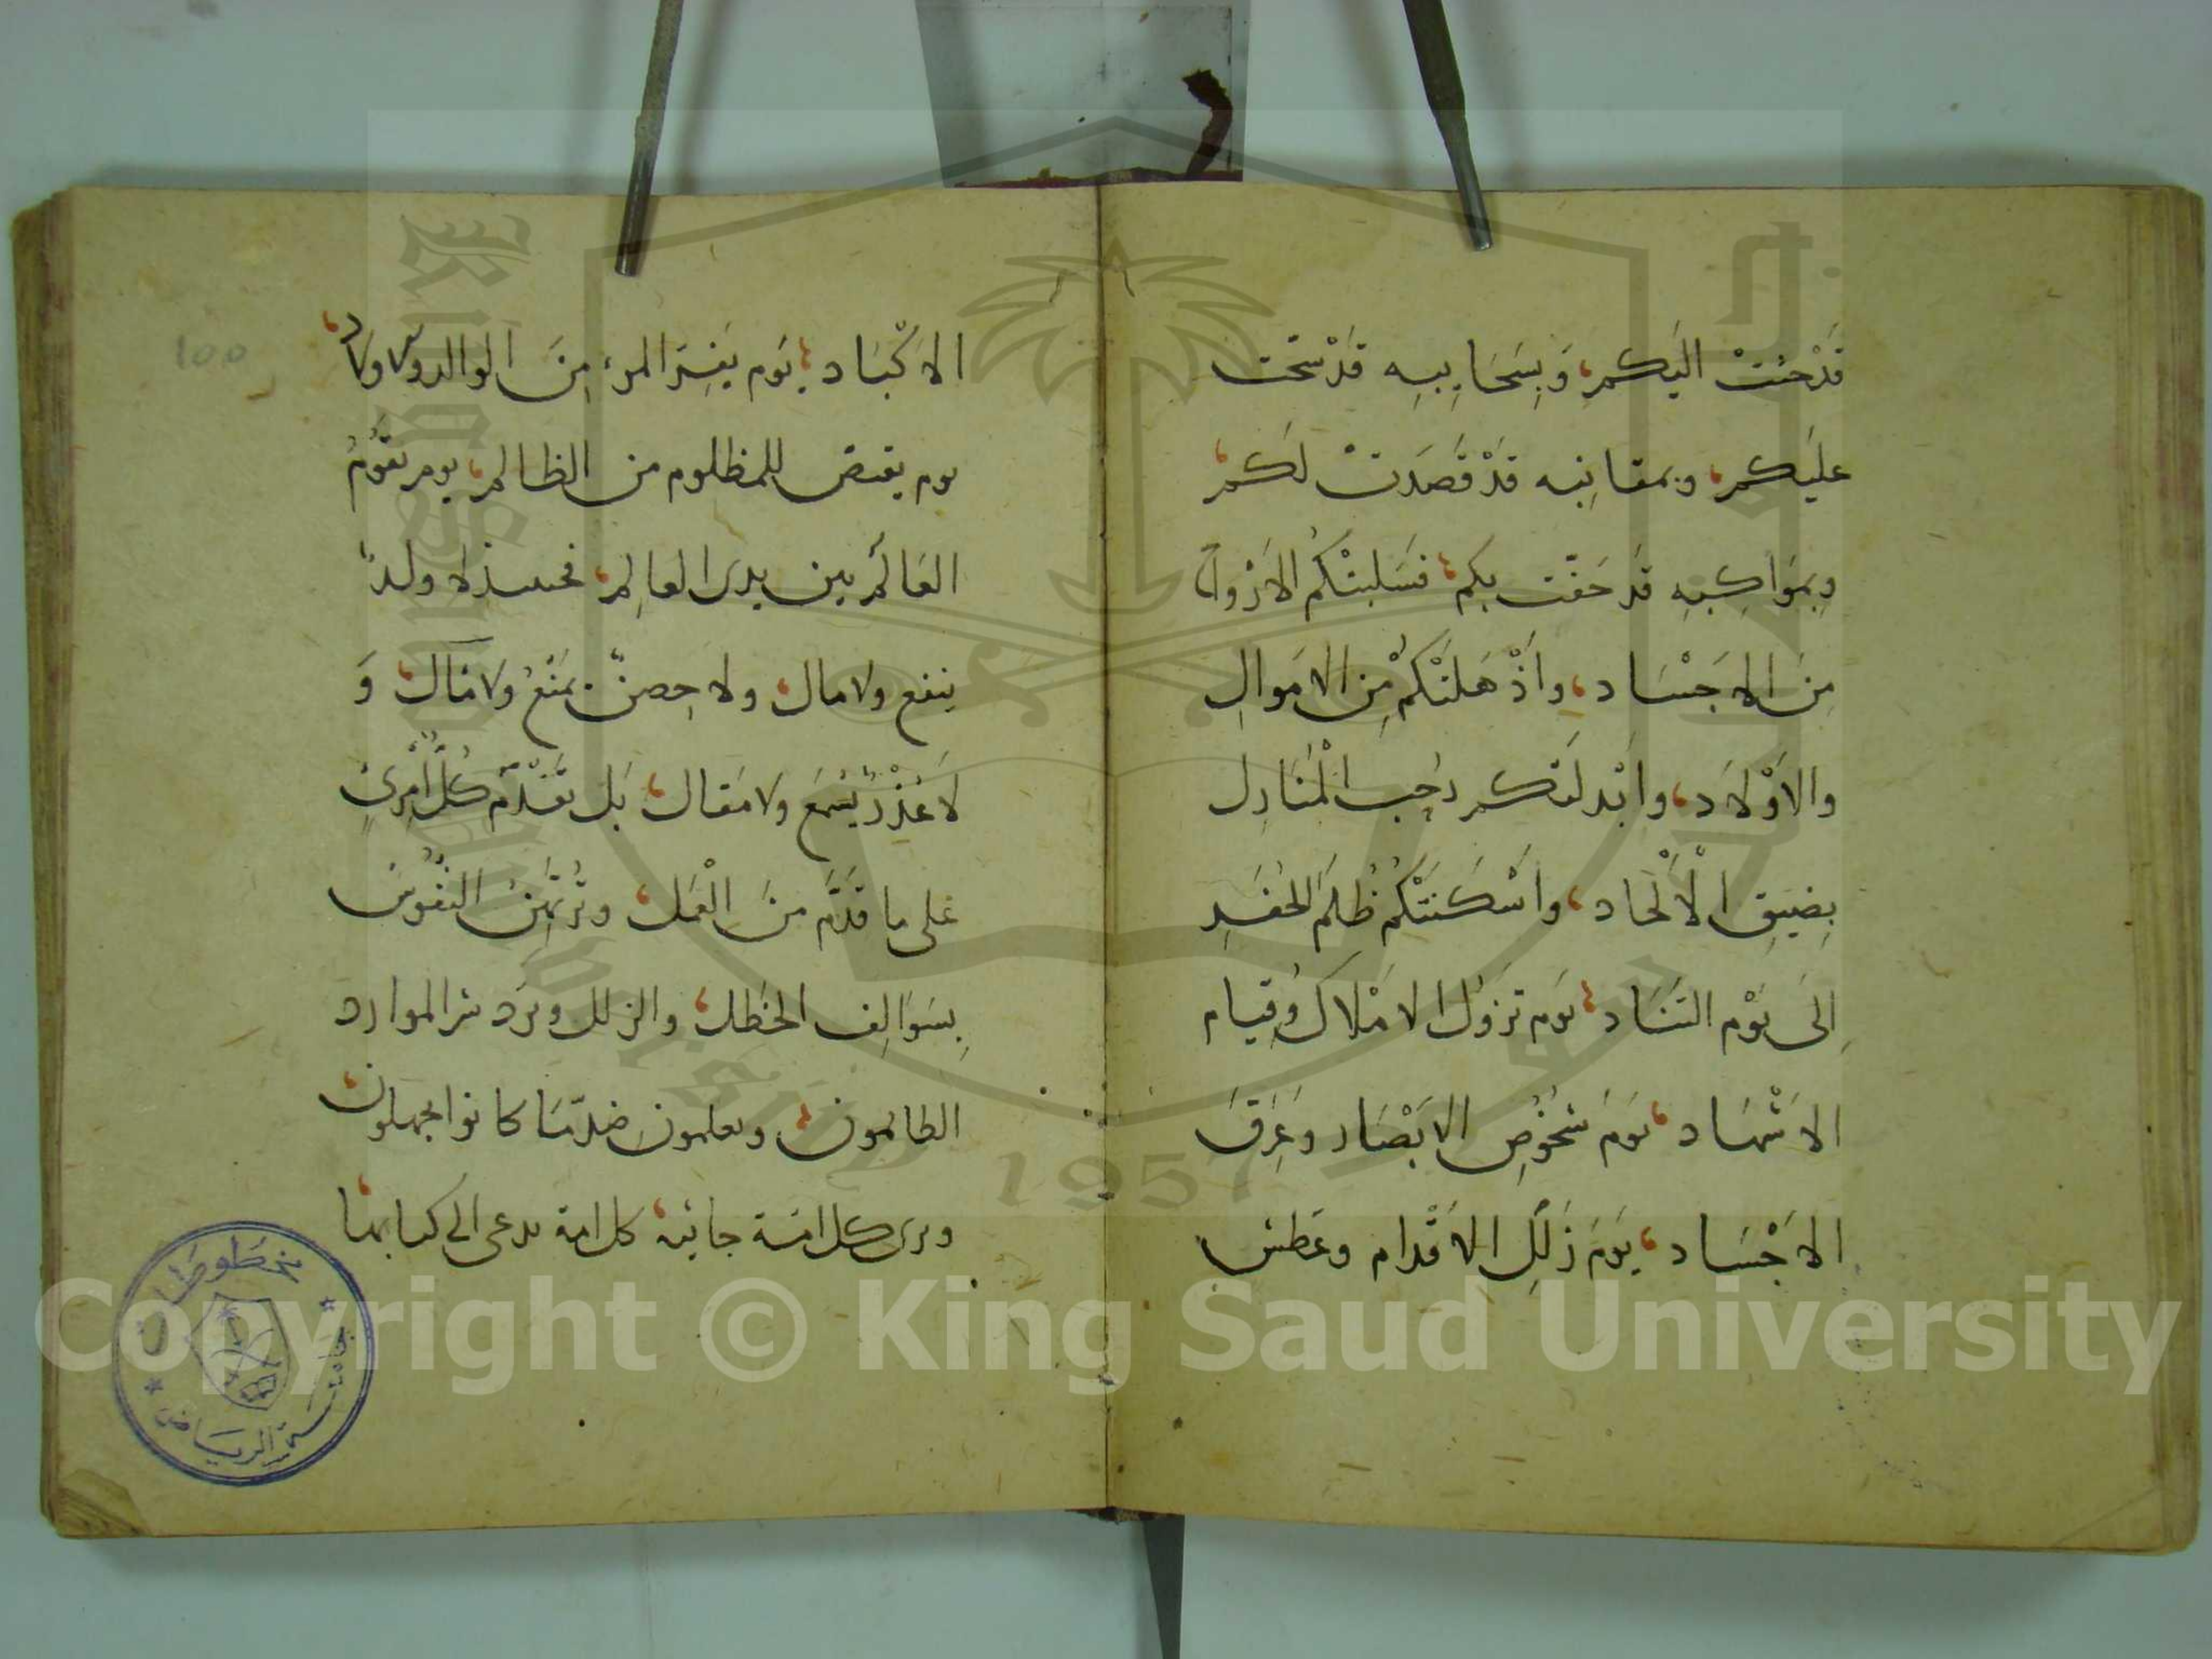 قَدْ حُثَّتْ اليَكم، وَبِسَحَايِبِهِ قَدْ سَحَّت
عليَكم، وبمقانِبه قَدْ قَصَدَتْ لَكمْ،
وبِمَوَاكِبِهِ قَد حَفَّت بكم، فَسَلَبتْكُم الاَرْواحَ
مِنَ الاجَسْاد، واَذْهَلتْكُمْ مِن الامَوالِ
والاَوْلاَد، واَبْدلتكم رُحب المْنَازِل
بِضِيقِ الْأَلْحَاد، واَسْكَنتْكُم ظُلَمَ الحُفَرِ
اِلَى يَوْم التنَاد، يَوم تزوُل الامْلاَك وقِيام
الاشْهَاد، يَومَ شخُوْصِ الابَصْار وعَرَق
الاجَسْاد، يَومَ زَلَلِ الاقَدْام وعَطش
الاكَبْاد، يَوم يَفِرّ المرء مِنَ الوالد والاولاد،
يوم يقتص للمظلوم من الظالم، يوم يقُومُ
العَالَم بين يدى العالِم، فحينئذ لا ولدٌ
ينفع ولا مال، ولا حِصنٌ يمَنْعُ ولا مَال، وَ
لاَ عُذْرٌ يُسْمَع ولا مَقال، بَل يَقْدَمُ كُلُّ امْرِىٍ
عَلى ما قَدَّم مِنَ الْعَمل، وتُرتَهَنُ النفُوُس
بِسَوَالِف الخَطَل، والزلل ويَرِد شر الموارد
الظالمون، ويعلمون ضدّ مَا كانوا يجهلون،
وترى كل امَة جاثيه، كل امة تدعى الى كتابها،
١٥٥
مخطوطات
جامعة الرياض
King Saud University
1957
Copyright © King Saud University